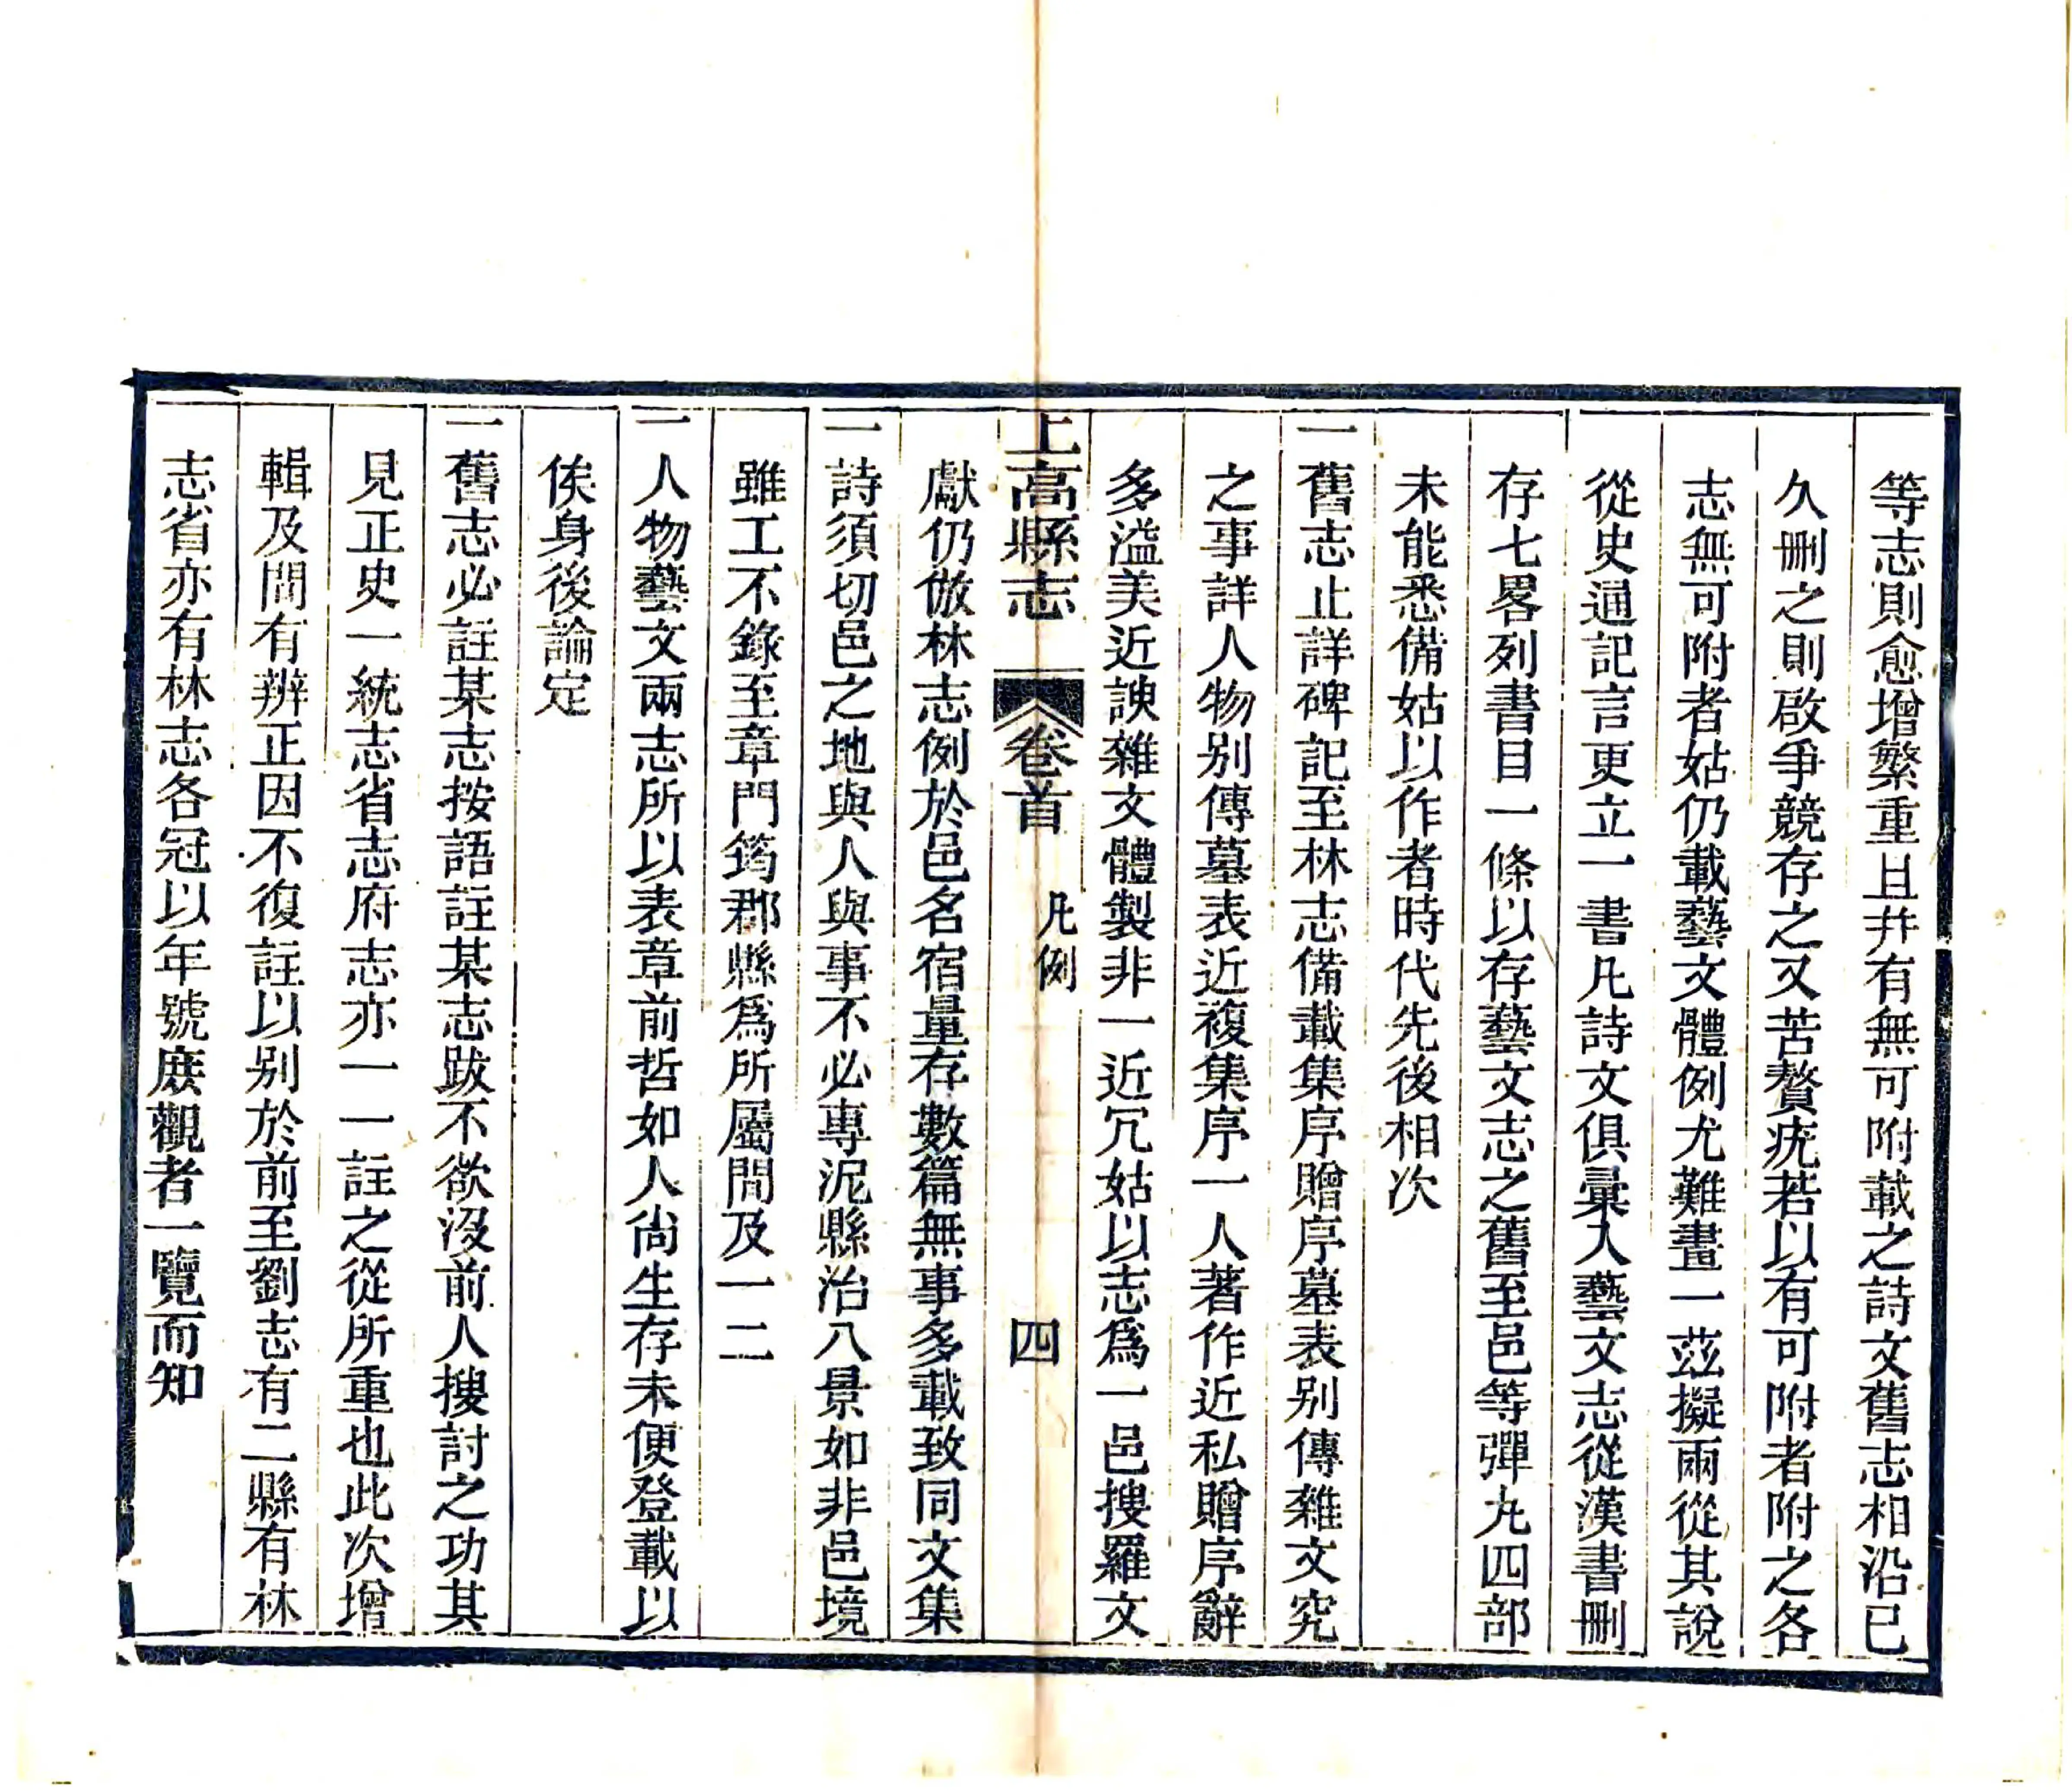 等志則愈增繁重且幷有無可附載之詩文舊志相沿已
久刪之則啟爭競存之又苦贅疣若以有可附者附之各
志無可附者姑仍載藝文體例尤難畫一茲擬兩從其說
從史通記言更立一書凡詩文俱彙入藝文志從漢書刪
存七畧列書目一條以存藝文志之舊至邑等彈丸四部
未能悉備姑以作者時代先後相次
一舊志止詳碑記至林志備載集序贈序墓表别傳雜文究
之事詳人物别傳墓表近複集序一人著作近私贈序辭
多溢美近諛雜文體製非一近冗姑以志爲一邑搜羅文
上高縣志 卷首 凡例 四
獻仍倣林志例於邑名宿量存數篇無事多載致同文集
一詩須切邑之地與人與事不必專泥縣治八景如非邑境
雖工不錄至章門筠郡縣爲所屬間及一二
一人物藝文兩志所以表章前哲如人尙生存未便登載以
俟身後論定
一舊志必註某志按語註某志跋不欲沒前人搜討之功其
見正史一統志省志府志亦一一註之從所重也此次增
輯及間有辨正因不復註以别於前至劉志有二縣有林
志省亦有林志各冠以年號庶觀者一覽而知